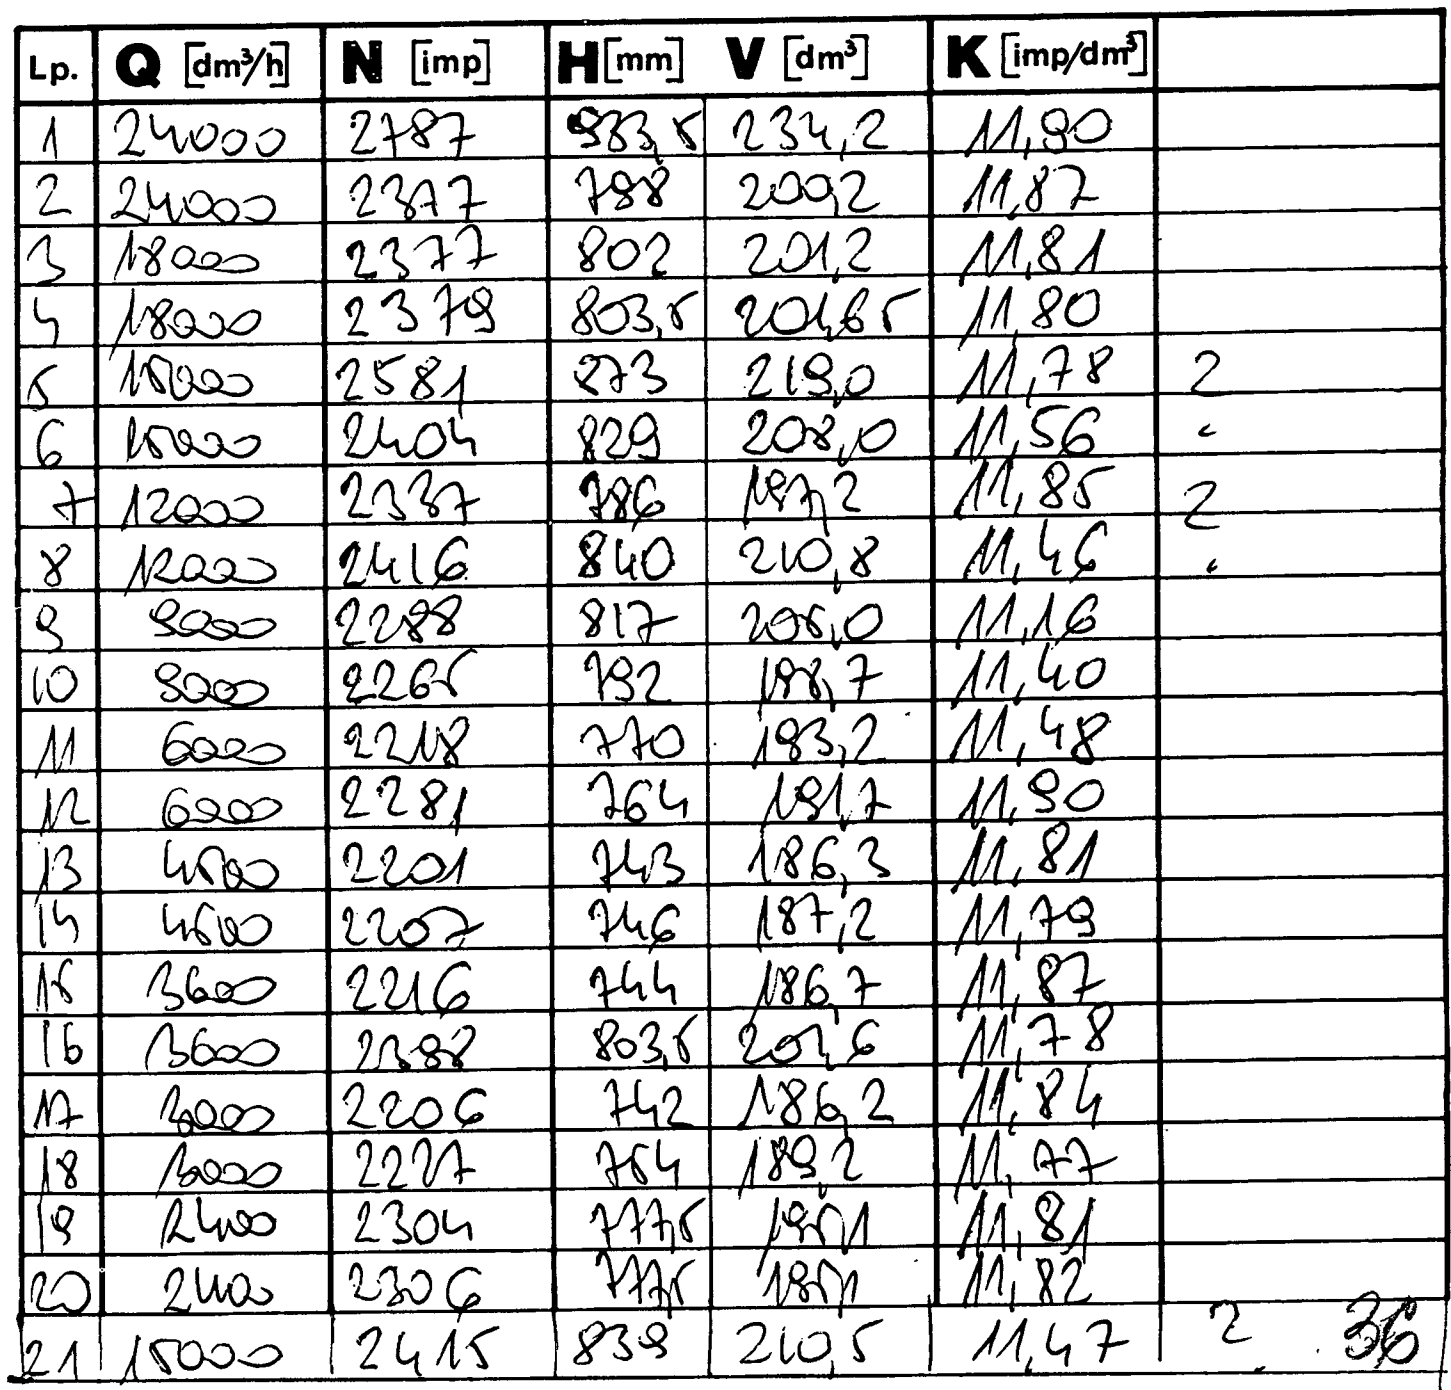 Lp. Q [dm³/h] N [imp] H [mm] V [dm³] K [imp/dm³]
1 24000 2787 933,5 234,2 11,90
2 24000 2377 798 200,2 11,87
3 18000 2377 802 201,2 11,81
4 18000 2379 803,5 201,65 11,80
5 15000 2581 873 219,0 11,78 2
6 15000 2404 829 208,0 11,56
7 12000 2337 786 197,2 11,85 2
8 12000 2416 840 210,8 11,46
9 9000 2288 817 205,0 11,16
10 9000 2265 792 198,7 11,40
11 6000 2218 770 193,2 11,48
12 6000 2281 764 191,7 11,90
13 4500 2201 743 186,3 11,81
14 4500 2207 746 187,2 11,79
15 3600 2216 744 186,7 11,87
16 3600 2388 803,5 201,6 11,78
17 3000 2206 742 186,2 11,84
18 3000 2227 754 189,2 11,77
19 2400 2304 777,5 195,1 11,81
20 2400 2306 777,5 195,1 11,82
21 15000 2415 839 210,5 11,47 2 36